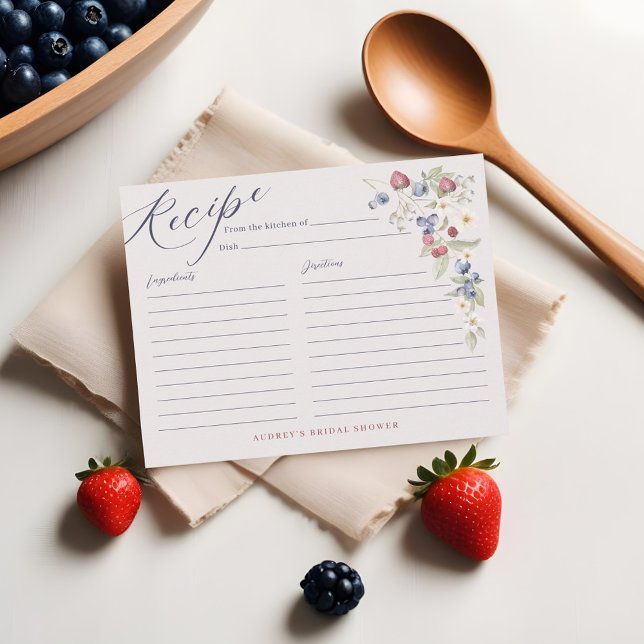 Recipe
From the kitchen of
Dish
Ingredients
Directions
AUDREY'S BRIDAL SHOWER